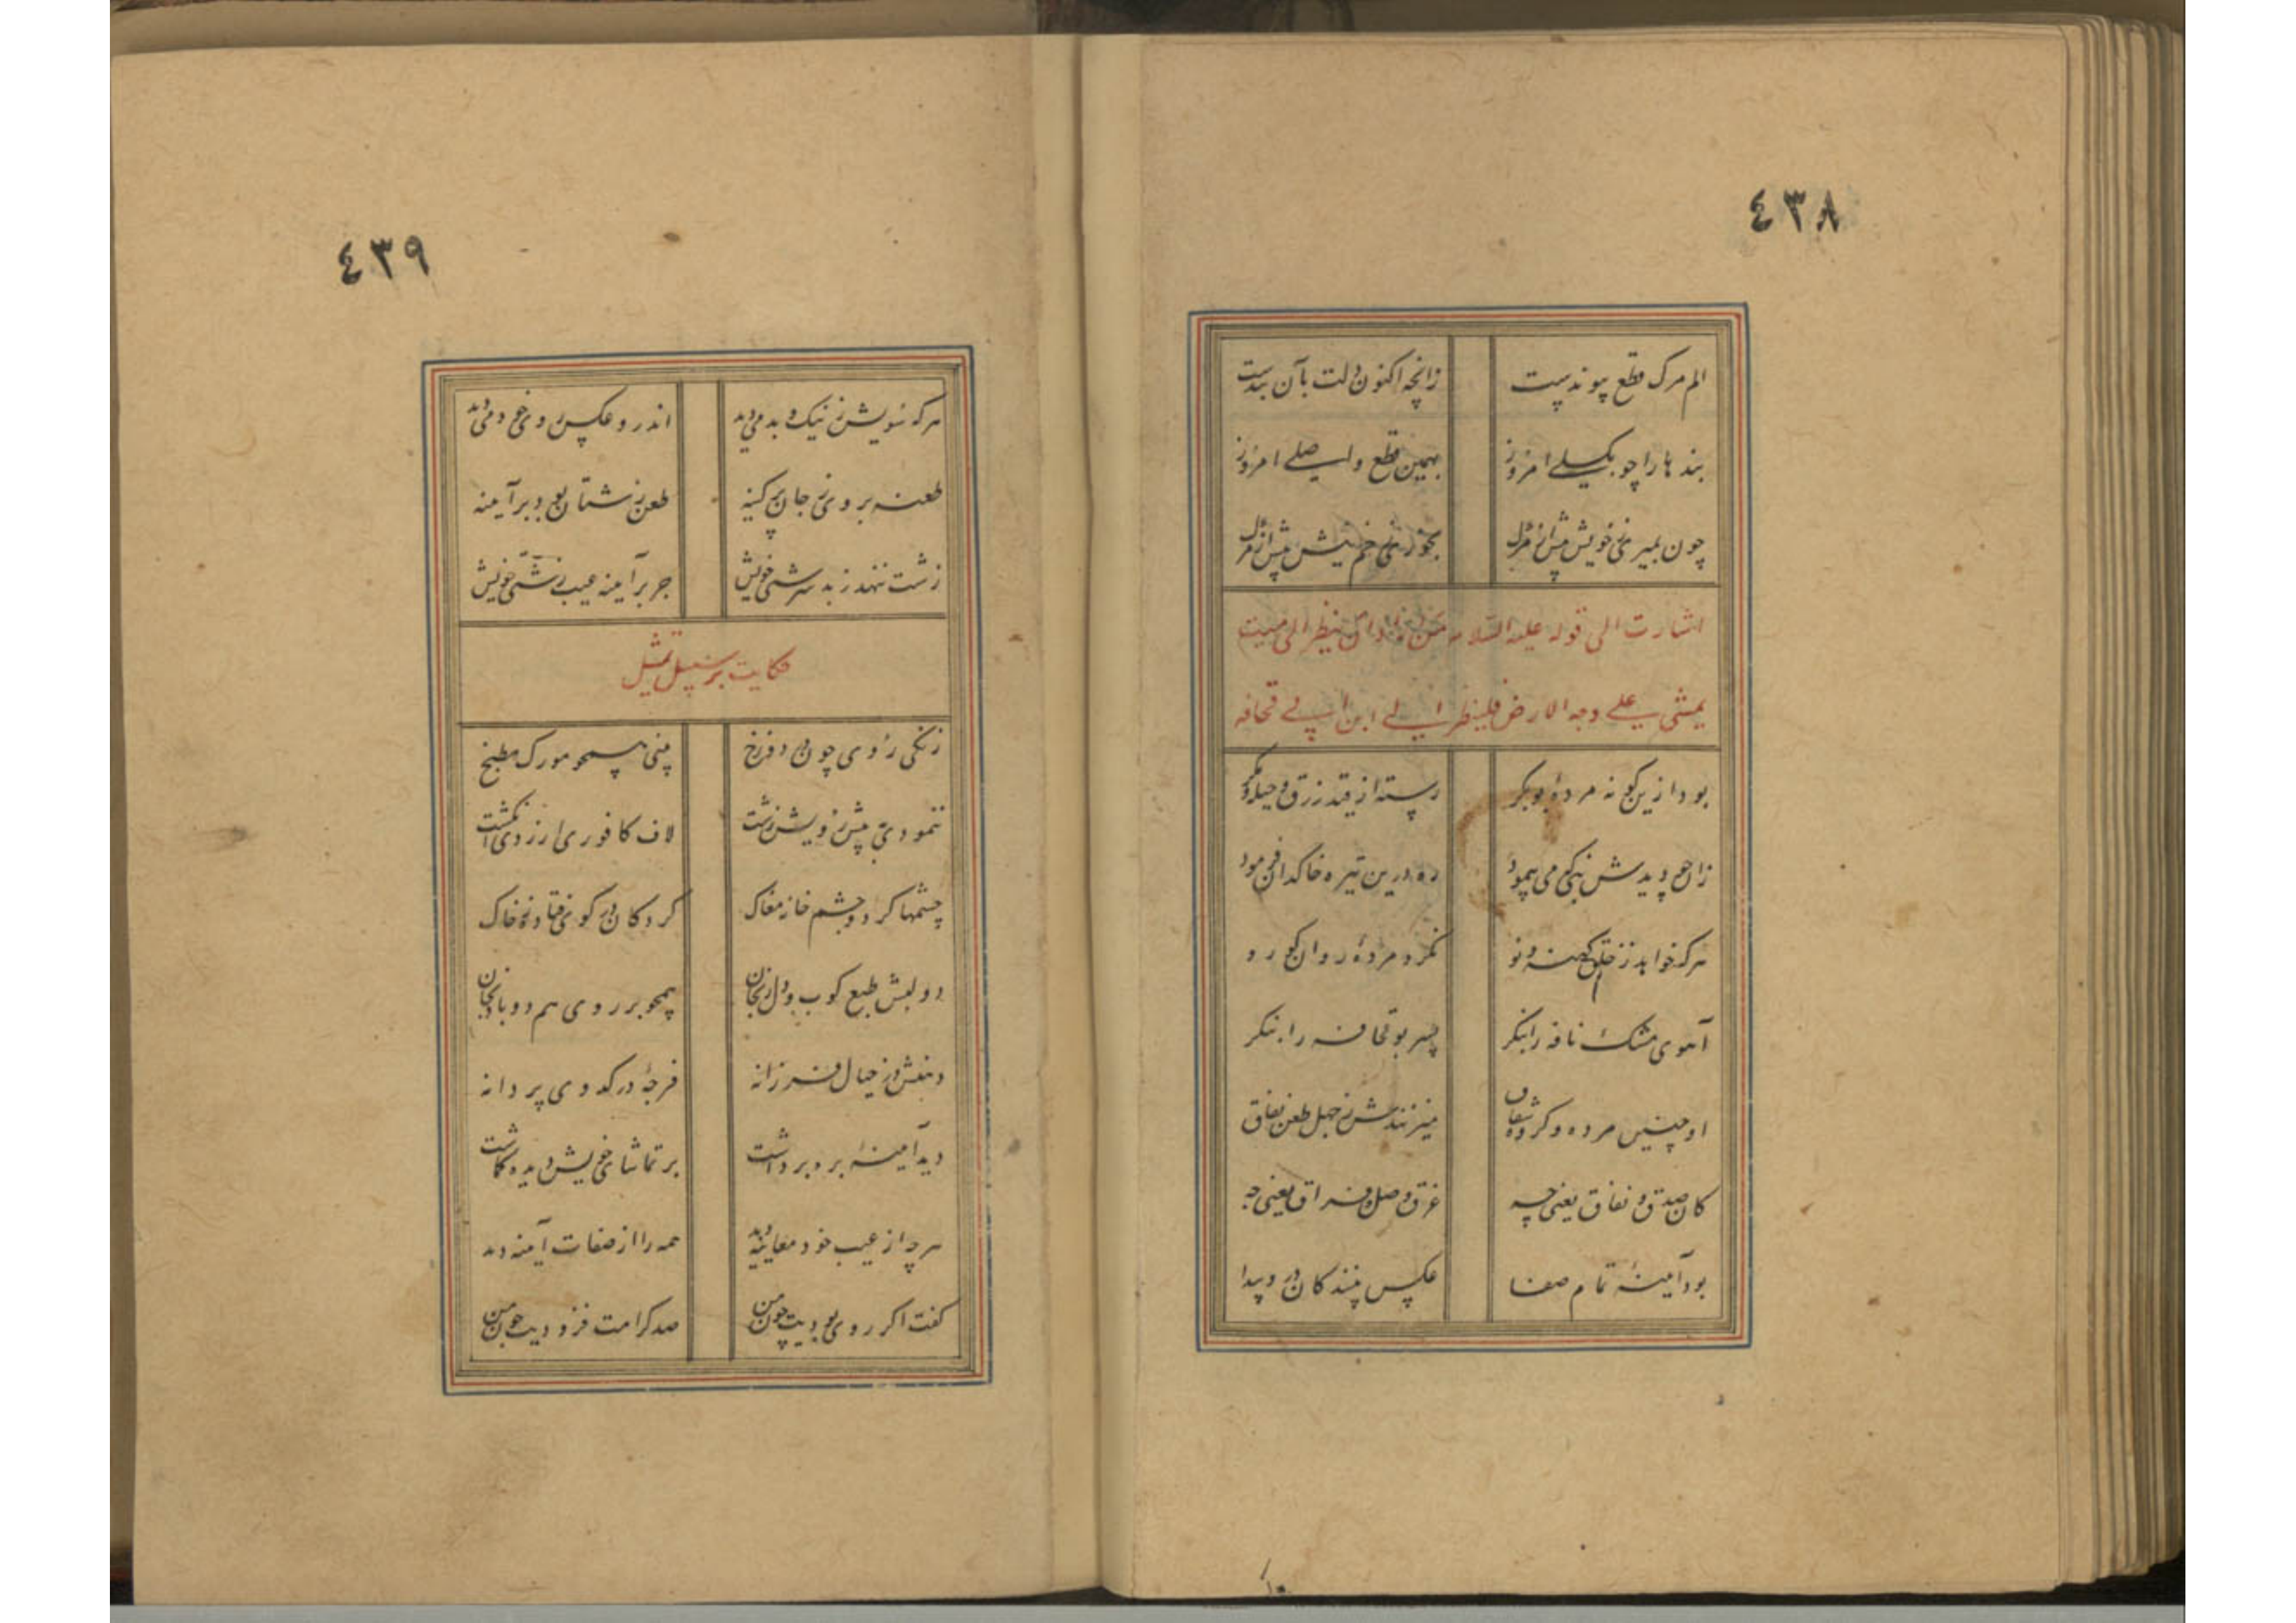 ٤٣٨
الم مرک قطع پیوندیست زانچه اکنون دلت بآن بندست
بند ها را چو بکسلی امروز بهمین قطع واصلی امروز
چون بمیری ز خویش پیش از مرک نخوری زخم نیش پیش از مرک
اشارت الی قوله علیه السلام من اراد ان ینظر الی میت
یمشی علی وجه الارض فلینظر الی ابن ابی قحافه
بود ازین کونه مرده بوبکر رسته از قید زرق و حیله و مکر
زاهی دیدش نبی می پیمود ره درین تیره خاکدان فرمود
هرکه خواهد ز خلق کهنه و نو نکرد مرده روان کو رو
آهوی مشک نافه را بنکر پسر بو قحافه را بنکر
او چنین مرده و کروه شقاق میزنندش ز جهل طعن نفاق
کان صدق و نفاق یعنی چه غرق وصل و فراق یعنی چه
بود آینه تمام صفا عکس بینندکان درو پیدا
٤٣٩
هرکه سویش ز نیک و بد می دید اندرو عکس روی خود می دید
طعنه بر وی ز جان پر کینه طعن زشتان بود بر آینه
زشت ننهد ز بد سرشتی خویش جز بر آینه عیب زشتی خویش
حکایت بر سبیل تمثیل
زنکی روی چون در دوزخ بینی همچو مورک مطبخ
ننمودی بپیش رویش زشت لاف کافوری ار زدی انکشت
چشمها کرد دو چشم خانه مغاک کردکان در کوی فتاده بخاک
دو لبش طبع کوب و دل رنجان همچو بر روی هم دو بادنجان
دهنش در خیال فرزانه فرجه در کدوی پر دانه
دید آینه بره برداشت بر تماشای خویش دیده کماشت
هر چه از عیب خود معاینه دید همه را از صفات آینه دید
کفت اکر روی بودیت چون من صد کرامت فزودیت چون من